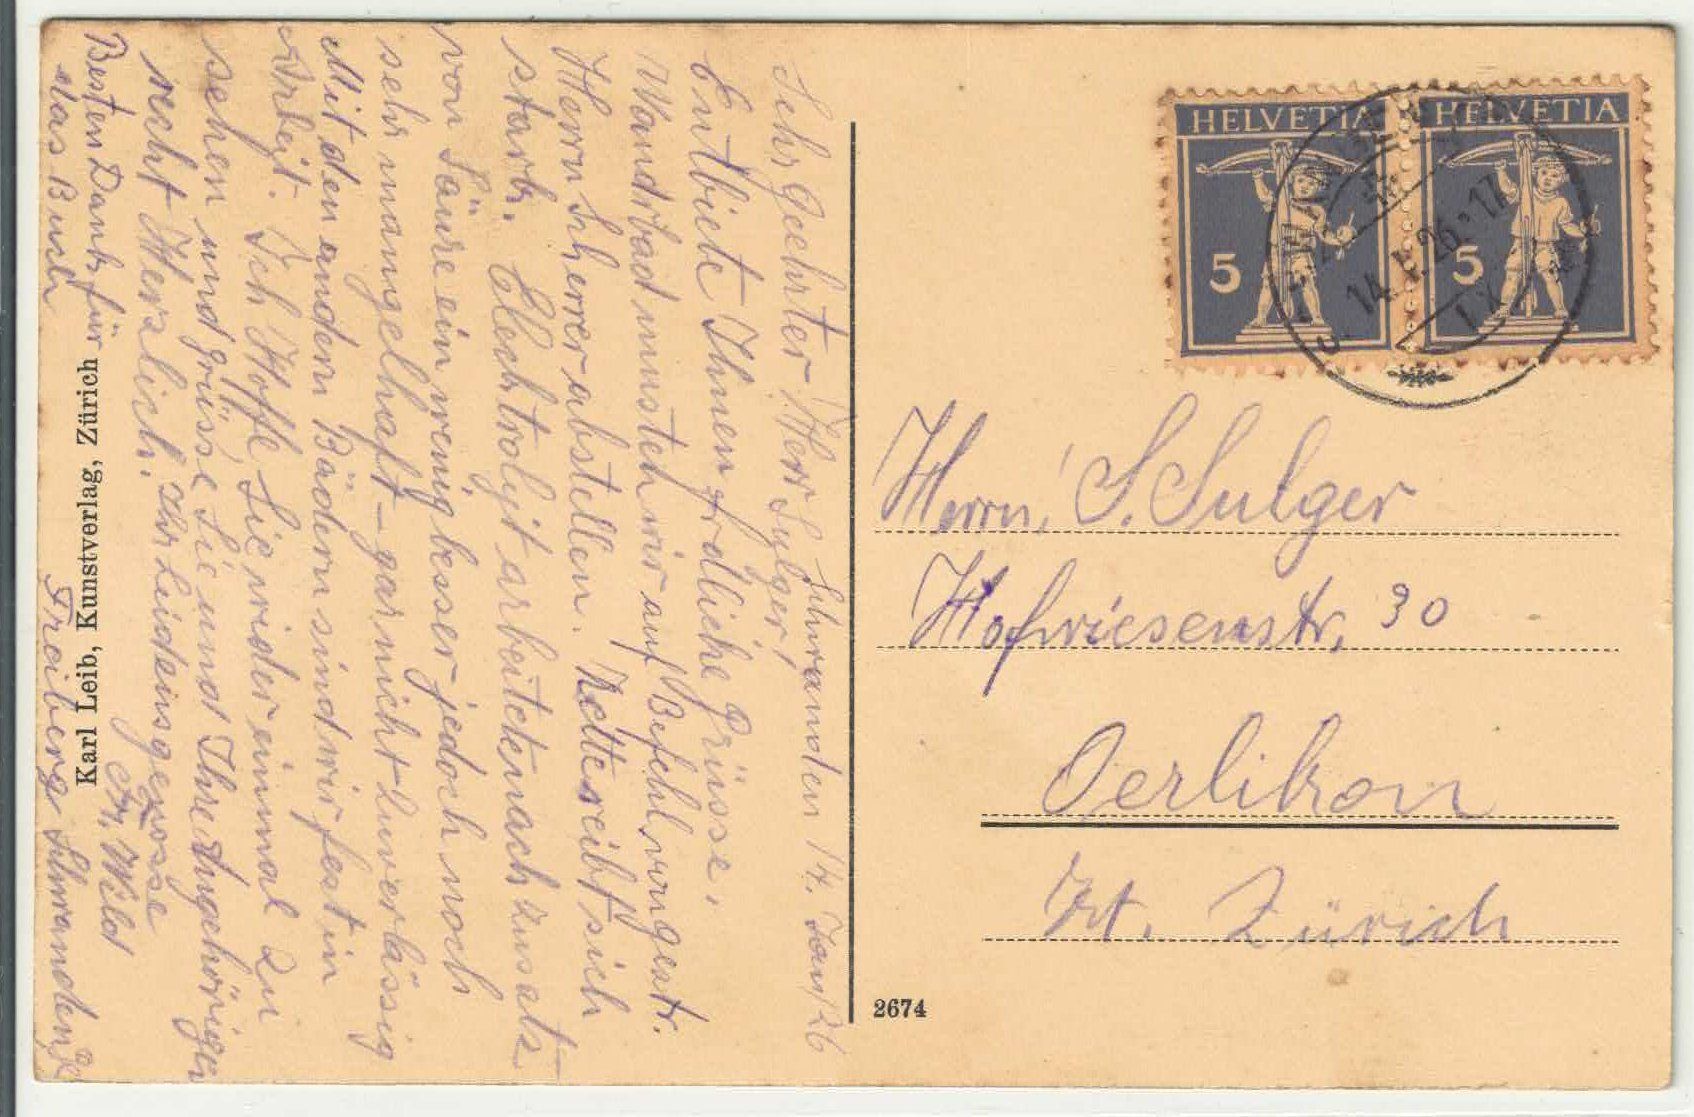 Schwanden 14. Jan/26
Sehr geehrter Herr Sulger!
Entbiete Ihnen frdliche Grüsse,
Wandtbad mussten wir auf Befehl von gestr.
Herrn Scherrer abstellen. Kette reibt sich
stark. Elecktrolyt arbeitete nach Zusatz
von Säure ein wenig besser jedoch noch
sehr mangelhaft - gar nicht Zuverlässig
Mit den andern Bädern sind wir fest in
Arbeit. Ich Hoffe Sie wider einmal zu
sehen und grüsse Sie und Ihre Angehörigen
recht Herzlich. Ihr Leidensgenosse
Fr. Wild
Besten Dank für Freiberg Schwanden Gl
das Buch
Karl Leib, Kunstverlag, Zürich
2674
HELVETIA HELVETIA
5 5
14.I.26.17
Herrn, S. Sulger
Hofwiesenstr, 30
Oerlikon
Kt. Zürich